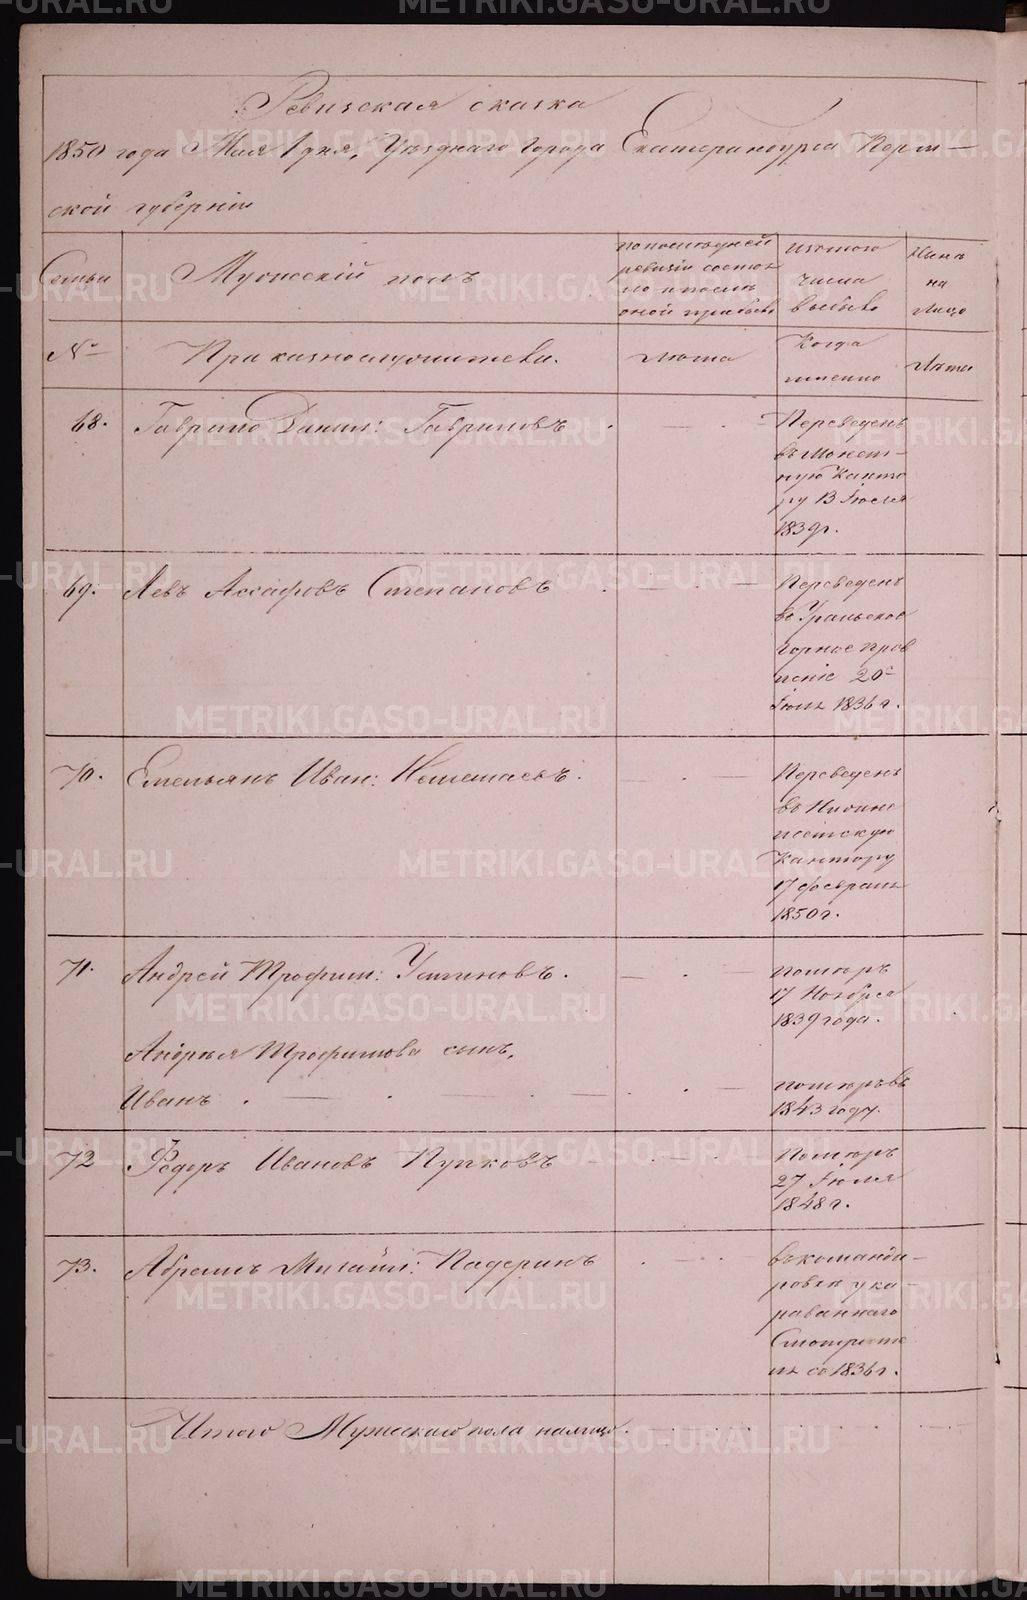 Ревизская сказка
1850 года Мая 1 дня, Уѣзднаго города Екатеринбурга Перм-
ской губерніи
Семьи
Мужескій полъ
по последней
ревизіи состоя
ло и послѣ
оной прибыло
Изтого
числа
выбыло
Нынѣ
на
Лицо
№
Лѣта
Когда
именно
Лѣта
68. Гаврило Данил: Гавриловъ
Переведенъ
въ Монет-
ную Канто
ру 13 Іюля
1839г.
69. Левъ Ассафовъ Степановъ
Переведенъ
во Уральское
горное прав
леніе 20е
Іюля 1836 г.
70. Емельянъ Иван:
Переведенъ
въ Нижне
исетскую
Кантору
17 февраля
1850 г.
71. Андрей Трофим: Устиновъ.
помюръ
17 Ноября
1839 года.
Андрея Трофимова сынъ,
Иванъ
помюръ въ
1843 году.
72 Федоръ Ивановъ Пупковъ
Помюръ
27 Іюля
1848 г.
73. Абрамъ Михайл: Падеринъ
въ команди-
ровкѣ у ка-
раваннаго
Смотрите
ля со 1836 г.
Итого Мужескаго пола налицо.
METRIKI.GASO-URAL.RU